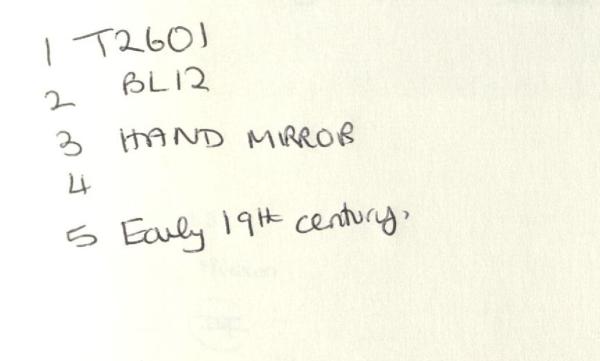 1 T2601
2 BL12
3 HAND MIRROR
4
5 Early 19th century.